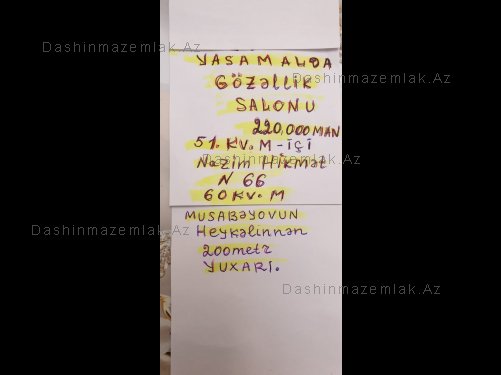 Dashinmazemlak.Az
YASAMALDA
Dashinmazemlak.Az
GÖZƏLLİK
SALONU
220,000MAN
51. KV. M-İÇİ
Dashinmazemlak.Az
Nəzim Hikmət
N 66
60 KV. M
MUSABƏYOVUN
Heykəlinnən
200metr
YUXARI.
Dashinmazemlak.Az